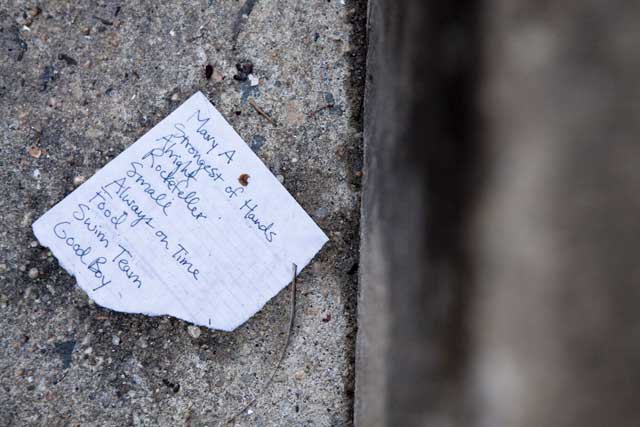 Mary A
Strongest of Hands
Alright
Rockfeller
Small
Always on Time
Food
Swim Team
Good Boy